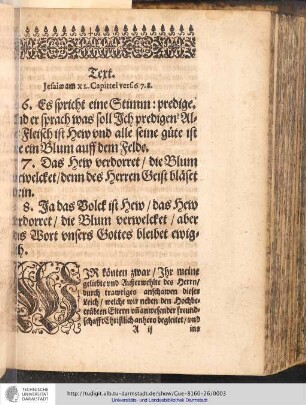 Text.
Jesaiæ am XL. Capittel vers 6. 7. 8.
6. Es spricht eine Stimm: predige.
nd er sprach was soll Ich predigen? Al-
Fleisch ist Hew vnd alle seine güte ist
e ein Blum auff dem Felde.
7. Das Hew verdorret / die Blum
rwelcket / denn des Herren Geist bläset
ein.
8. Ja das Volck ist Hew / das Hew
rdorret / die Blum verwelcket / aber
s Wort vnsers Gottes bleibet ewig-
h.
WIR könten zwar / Ihr meine
geliebte vnd Außerwehlte des Herrn /
durch trawriges anschawen dieser
Leich / welche wir neben den Hochbe-
trübten Eltern vñ anwesender freund-
schafft Christlich anhero begleitet / vnd
A ij
ins
TECHNISCHE
UNIVERSITÄT
DARMSTADT
http://tudigit.ulb.tu-darmstadt.de/show/Gue-8160-26/0003
Universitäts- und Landesbibliothek Darmstadt